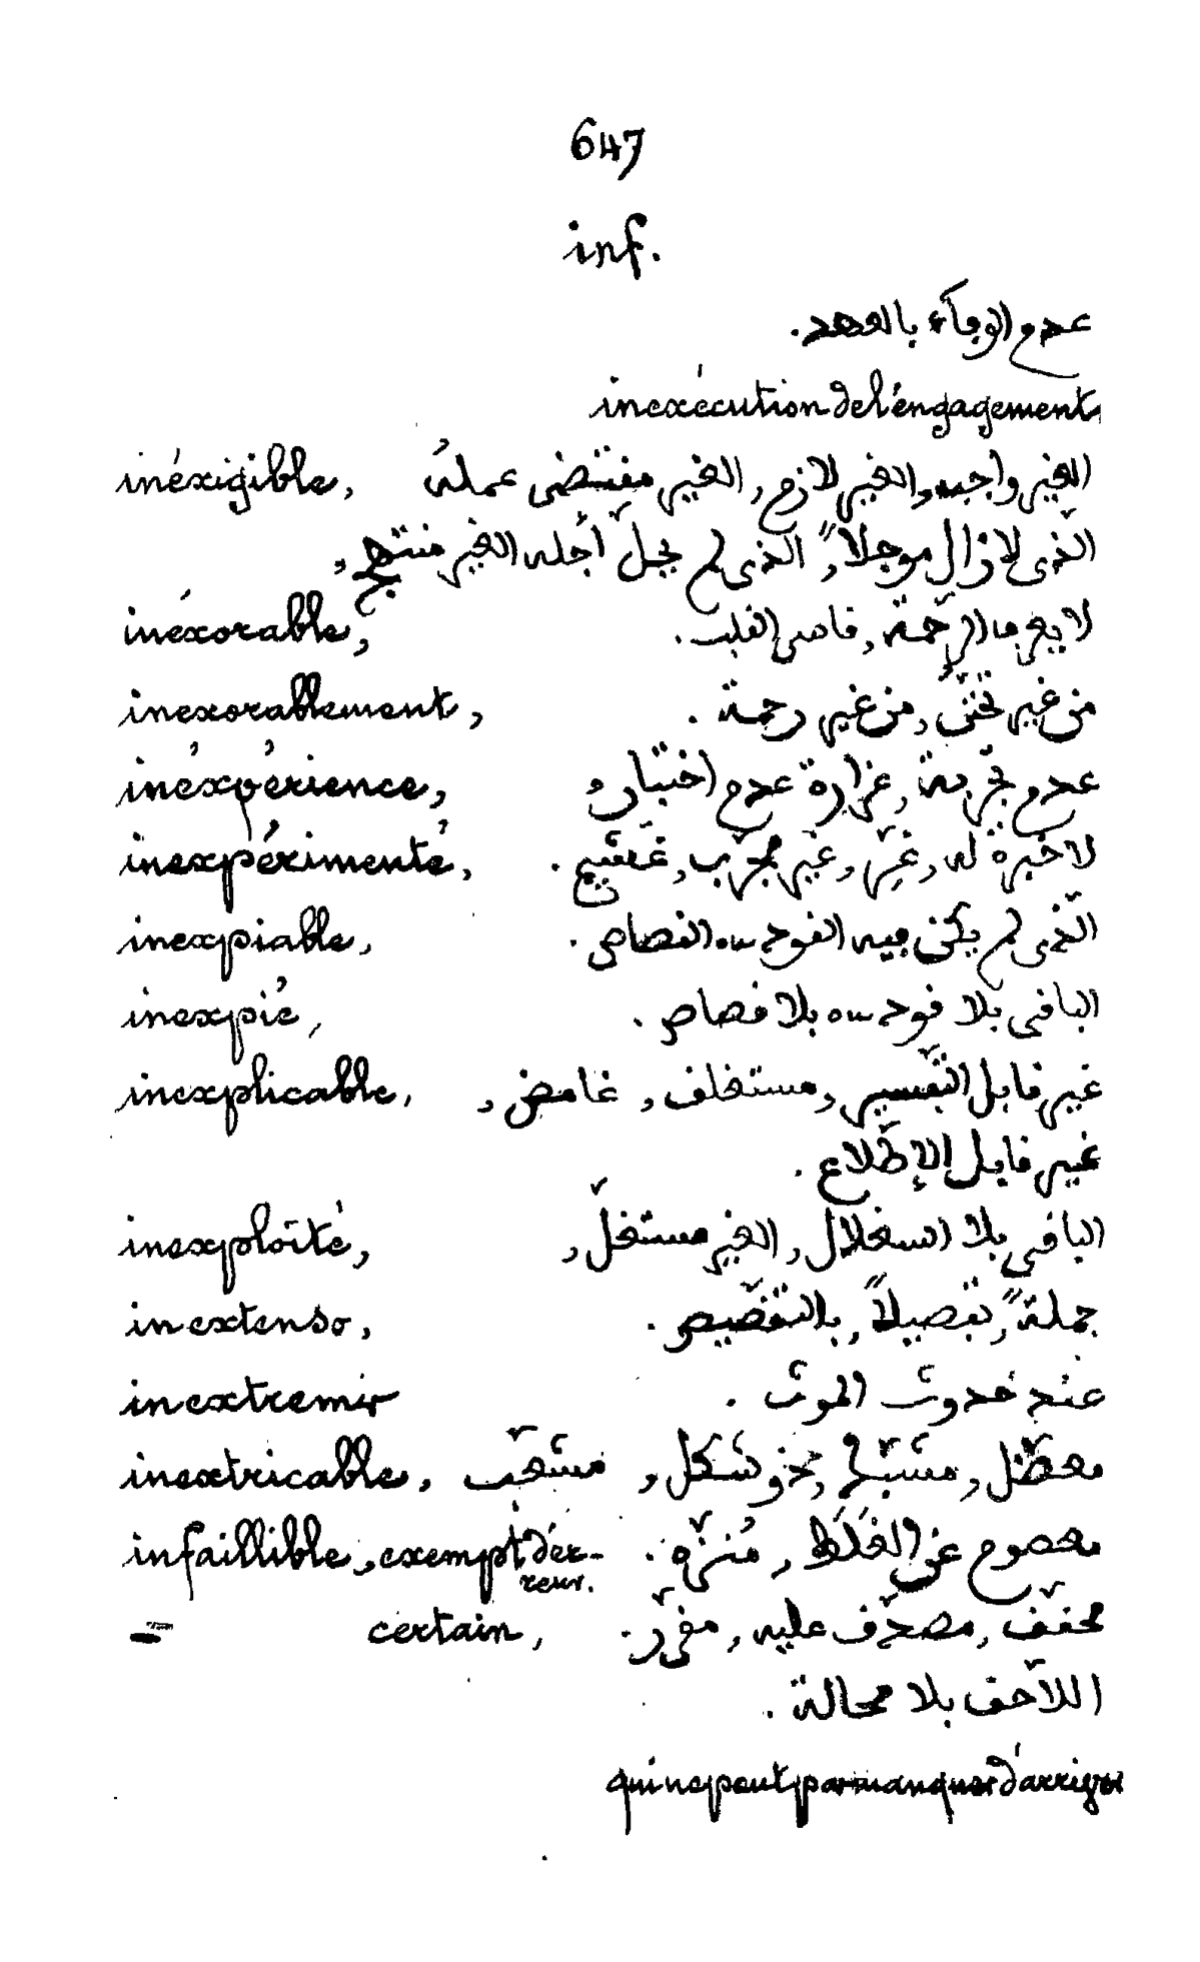 647
inf.
عدم الوفاء بالعهد.
inexécution de l'éngagement
inéxigible, الغير واجب, الغير لازم, الغير مقتضى عمله
الذى لا زال موجلاً, الذى لم يحلّ أجله الغير منتهج,
inéxorable, لا يعرف الرحمة, قاصى القلب.
inexorablement, من غير تحنّن, من غير رحمة.
inéxpérience, عدم تجربة, غرارة عدم اختبار,
inexpérimenté, لا خبرة له, غرّ, غير مجرّب, غشيم.
inexpiable, الذى لم يكن فيه القود ou القصاص.
inexpié, الباقى بلا قود ou بلا قصاص.
inexplicable, غير قابل التفسير, مستغلف, غامض,
غير قابل الإطّلاع.
inexploité, الباقى بلا استغلال, الغير مستغلّ,
in extenso, جملةً, تفصيلاً, بالتفصيص.
in extremis عند حدوث الموت.
inextricable, معضل, مشبّك, ذو شكل, متشعّب
infaillible, exempt d'er-reur. معصوم عن الغلط, مُنزّه.
= certain, محقّق, مصدّق عليه, مقرّر.
اللاّحق بلا محالة.
qui ne peut pas manquer d'arriver